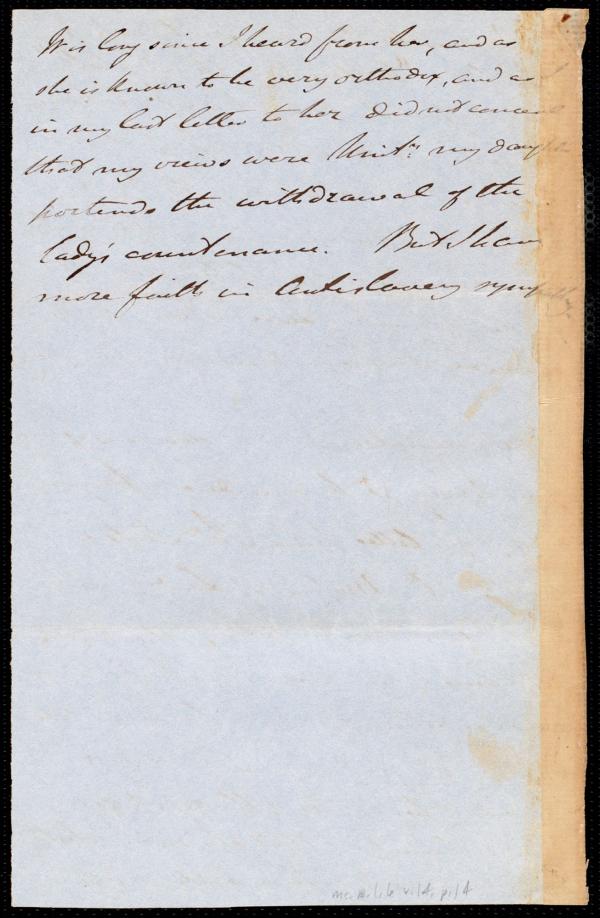 It is long since I heard from her, and as
she is known to be very orthodox, and as I
in my last letter to her did not conceal
that my views were Unitn. my daughter
portends the withdrawal of the
lady's countenance. But I have
more faith in Antislavery sympathy.